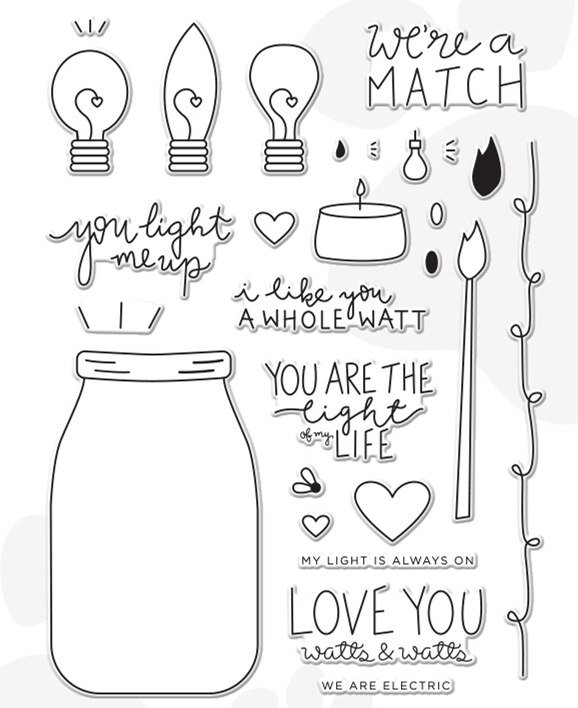 we're a
MATCH
you light
me up
i like you
A WHOLE WATT
YOU ARE THE
light
of my LIFE
MY LIGHT IS ALWAYS ON
LOVE YOU
watts & watts
WE ARE ELECTRIC